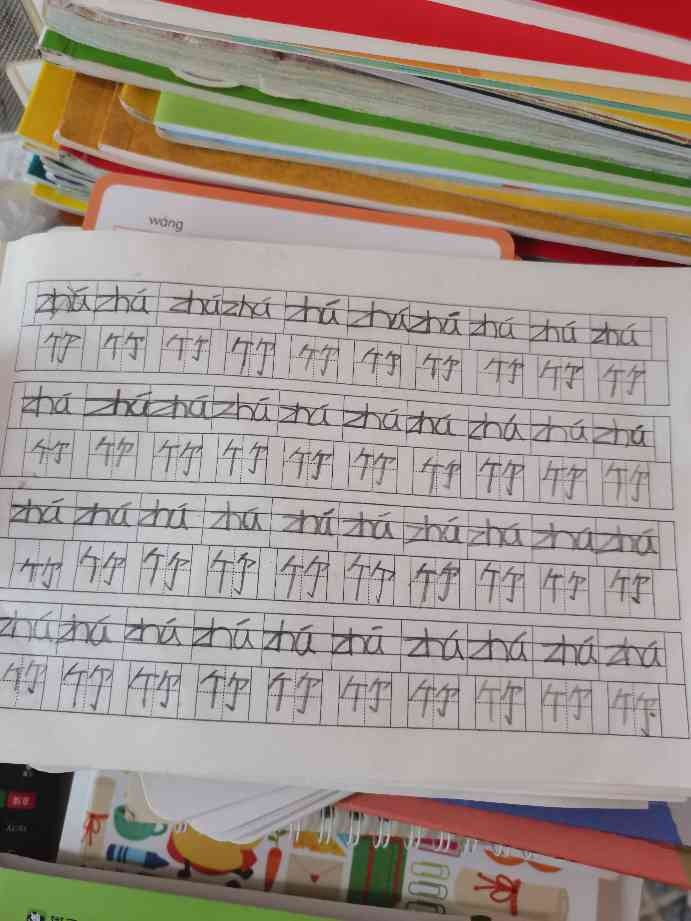 wáng
zhú zhú zhú zhú zhú zhú zhú zhú zhú zhú
竹 竹 竹 竹 竹 竹 竹 竹 竹 竹
zhú zhú zhú zhú zhú zhú zhú zhú zhú zhú
竹 竹 竹 竹 竹 竹 竹 竹 竹 竹
zhú zhú zhú zhú zhú zhú zhú zhú zhú zhú
竹 竹 竹 竹 竹 竹 竹 竹 竹 竹
zhú zhú zhú zhú zhú zhú zhú zhú zhú zhú
竹 竹 竹 竹 竹 竹 竹 竹 竹 竹